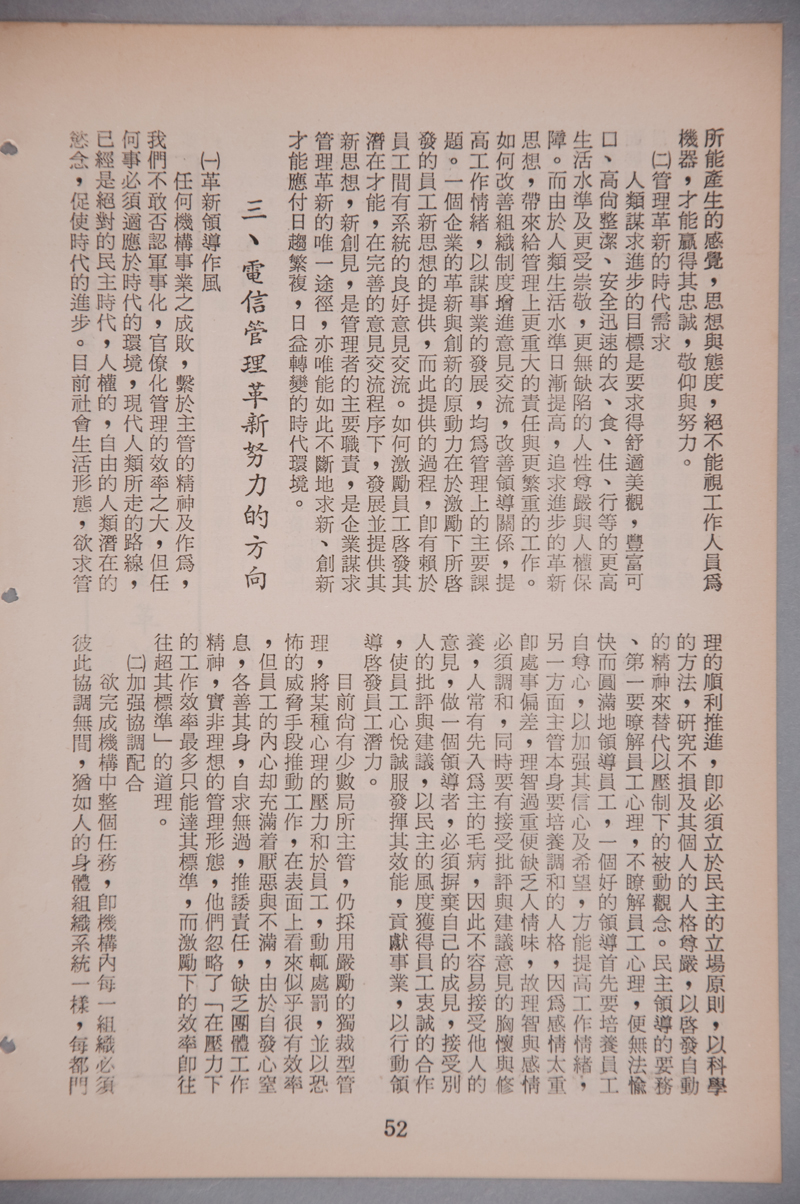 所能產生的感覺，思想與態度，絕不能視工作人員為
機器，才能贏得其忠誠，敬仰與努力。
㈡管理革新的時代需求
人類謀求進步的目標是要求得舒適美觀，豐富可
口、高尚整潔、安全迅速的衣、食、住、行等的更高
生活水準及更受崇敬，更無缺陷的人性尊嚴與人權保
障。而由於人類生活水準日漸提高，追求進步的革新
思想，帶來給管理上更重大的責任與更繁重的工作。
如何改善組織制度增進意見交流，改善領導關係，提
高工作情緒，以謀事業的發展，均為管理上的主要課
題。一個企業的革新與創新的原動力在於激勵下所啓
發的員工新思想的提供，而此提供的過程，卽有賴於
員工間有系統的良好意見交流。如何激勵員工啓發其
潛在才能，在完善的意見交流程序下，發展並提供其
新思想，新創見，是管理者的主要職責，是企業謀求
管理革新的唯一途徑，亦唯能如此不斷地求新、創新
才能應付日趨繁複，日益轉變的時代環境。
三、電信管理革新努力的方向
㈠革新領導作風
任何機構事業之成敗，繫於主管的精神及作為，
我們不敢否認軍事化，官僚化管理的效率之大，但任
何事必須適應於時代的環境，現代人類所走的路線，
已經是絕對的民主時代，人權的，自由的人類潛在的
慾念，促使時代的進步。目前社會生活形態，欲求管
理的順利推進，卽必須立於民主的立場原則，以科學
的方法，研究不損及其個人的人格尊嚴，以啓發自動
的精神來替代以壓制下的被動觀念。民主領導的要務
、第一要瞭解員工心理，不瞭解員工心理，便無法愉
快而圓滿地領導員工，一個好的領導首先要培養員工
自尊心，以加强其信心及希望，方能提高工作情緒，
另一方面主管本身要培養調和的人格，因為感情太重
卽處事偏差，理智過重便缺乏人情味，故理智與感情
必須調和，同時要有接受批評與建議意見的胸懷與修
養，人常有先入為主的毛病，因此不容易接受他人的
意見，做一個領導者，必須摒棄自己的成見，接受別
人的批評與建議，以民主的風度獲得員工衷誠的合作
，使員工心悅誠服發揮其效能，貢獻事業，以行動領
導啓發員工潛力。
目前尚有少數局所主管，仍採用嚴勵的獨裁型管
理，將某種心理的壓力和於員工，動輒處罰，並以恐
怖的威脅手段推動工作，在表面上看來似乎很有效率
，但員工的內心却充滿着厭惡與不滿，由於自發心窒
息，各善其身，自求無過，推諉責任，缺乏團體工作
精神，實非理想的管理形態，他們忽略了「在壓力下
的工作效率最多只能達其標準，而激勵下的效率卽往
往超其標準」的道理。
㈡加强協調配合
欲完成機構中整個任務，卽機構內每一組織必須
彼此協調無間，猶如人的身體組織系統一樣，每都門
52